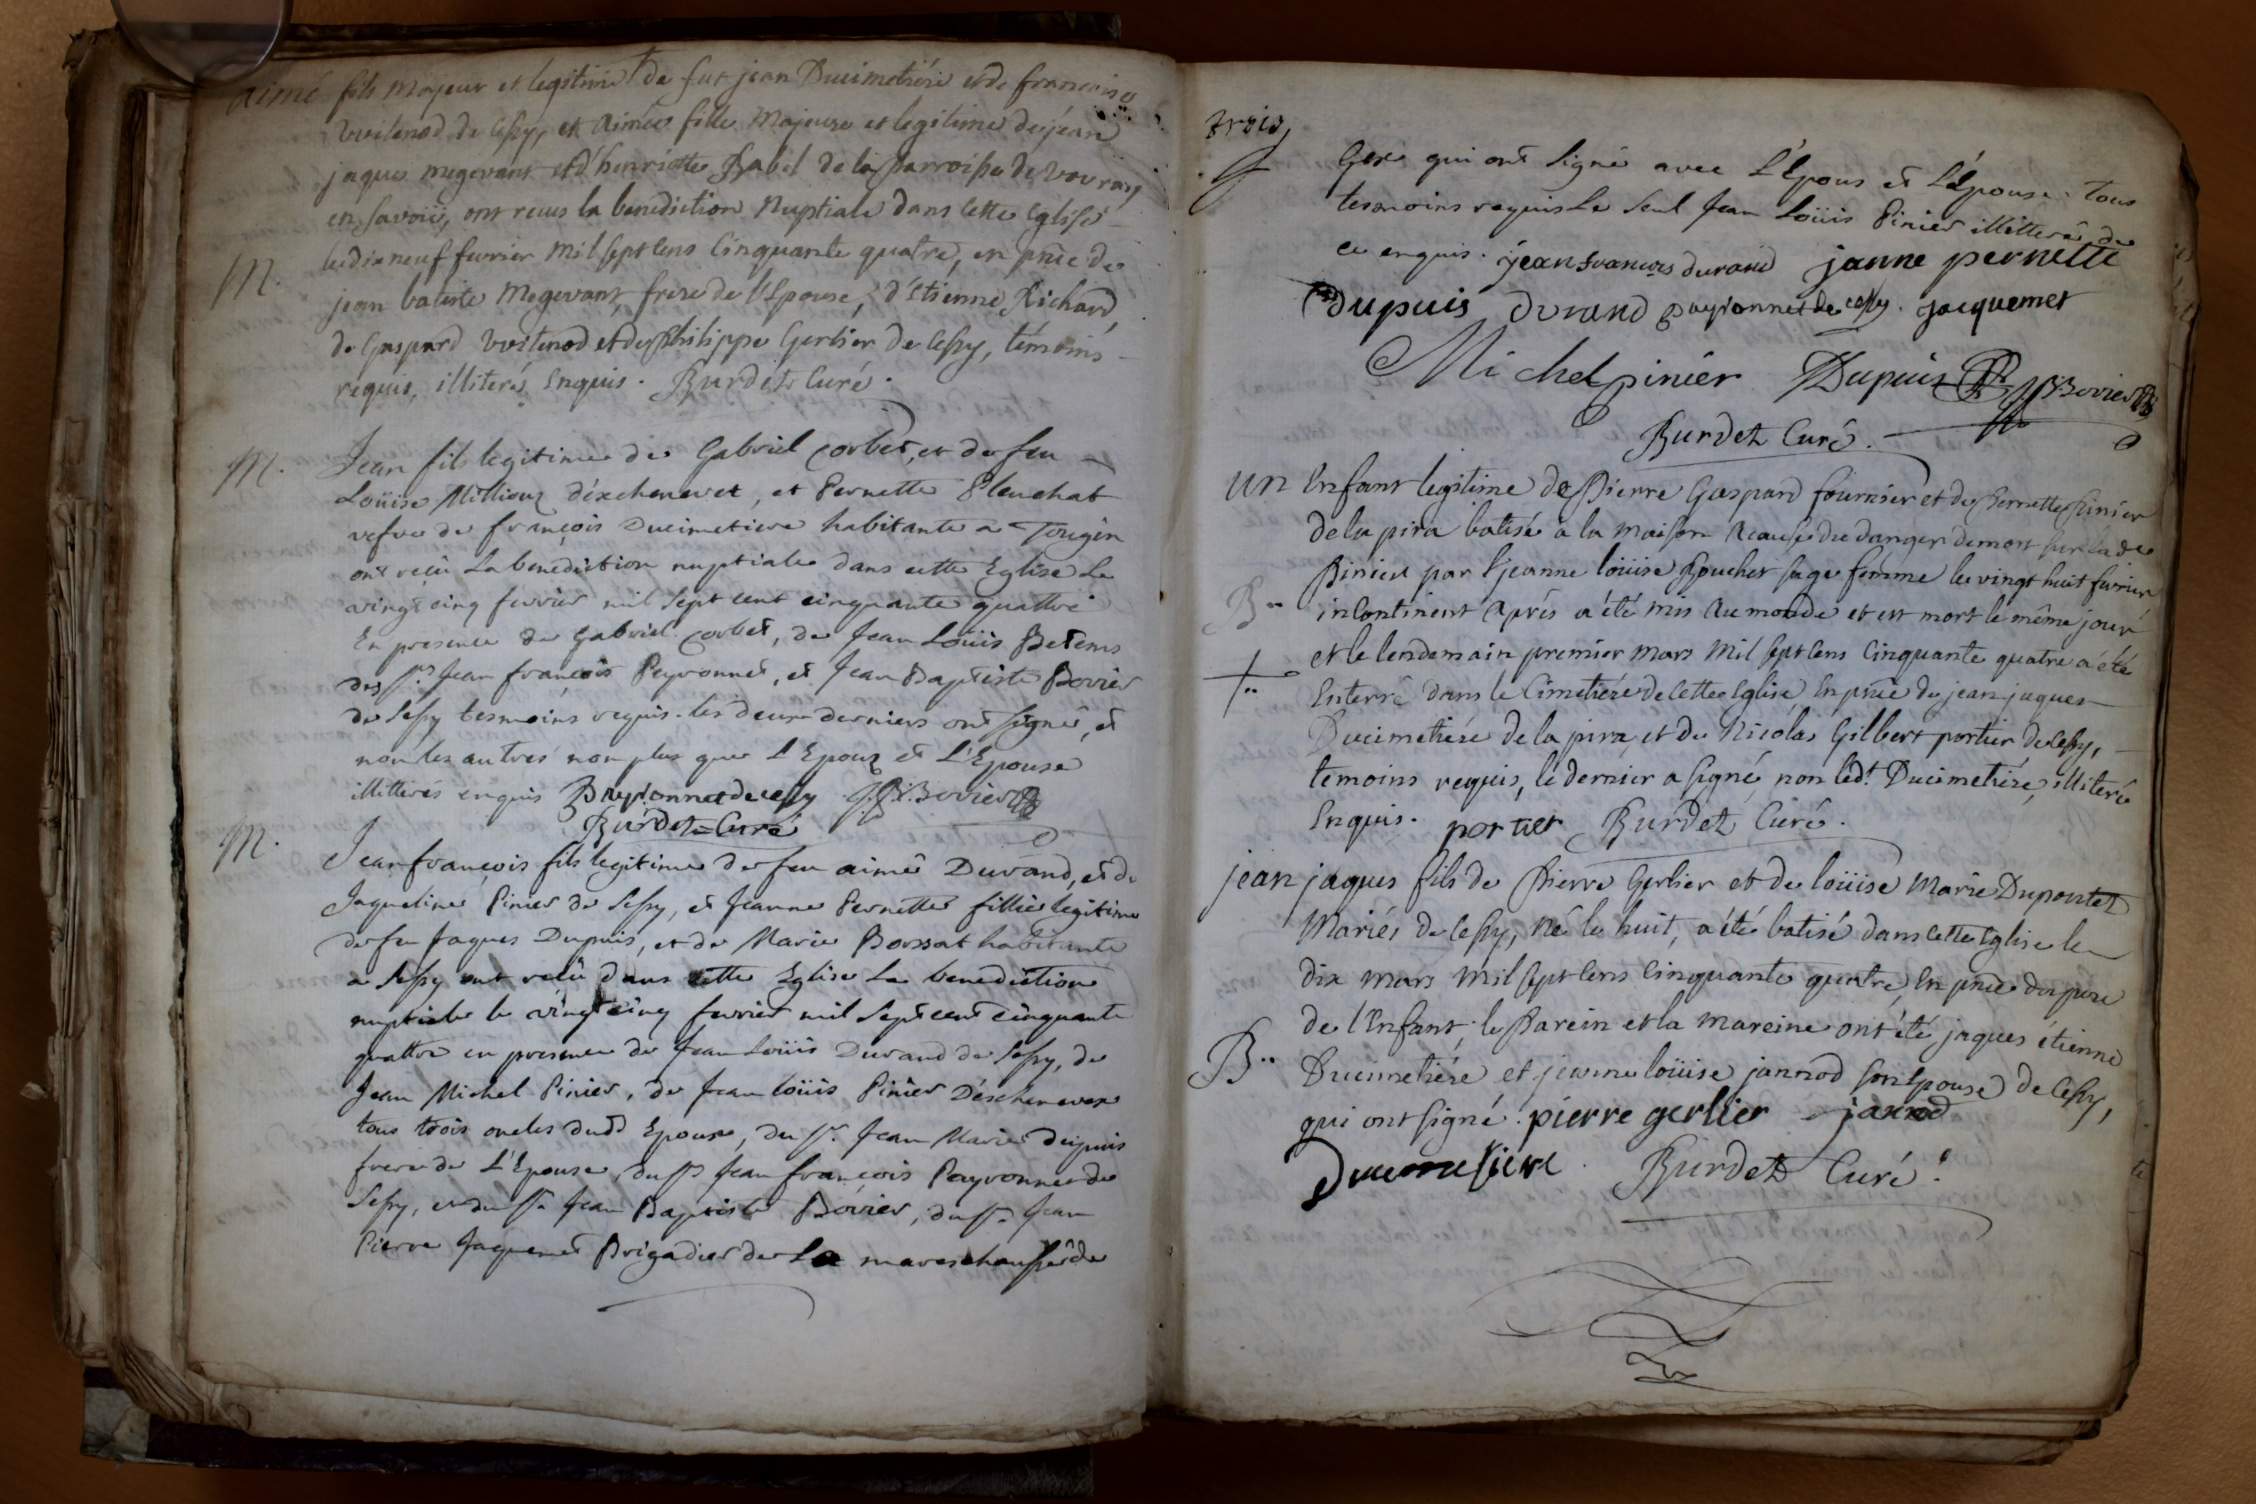 aimé fils majeur et legitime de fut jean Ducimetiére et de francoise
Vuitenod de Cessy, et Aimée fille Majeure et legitime de jean
jaque megevant et d'henriette Babel de la Parroisse de Vovray
en Savoïe, ont recus la benediction Nuptiale dans cette Eglise
M. le dix neuf fevrier mil sept cens cinquante quatre, en pnce de
jean batiste Megevant, frere de l'Epouse, d'étienne Richard,
de Gaspard Vuitenod et de philippe Gerlier de Cessy, témoins
requis, illiterés enquis. Burdet Curé.
M. Jean fils legitime de Gabriel Corbet, et de feu
Loüise Millioux déxchenevex, et Pernette Pleuchat
vefve de françois Ducimetiere habitante a Tougin
ont reçü la benediction nuptiale dans cette Eglise Le
vingt cinq fevrier mil sept cent cinquante quattre
En presence de Gabriel Corbet, de Jean Loüis Betems
des Srs Jean françois Peyronnet, et Jean Baptiste Bovier
de Sessy tesmoins requis. les deux derniers ont signé, et
non les autres non plus que L'Epoux et L'Epouse
illitterés enquis Peyronnet de cessy J. B. Bovier
Burdet Curé
M. Jean françois fils legitime de feu aimé Durand, et de
Jaqueline Pinier de Sessy, et Jeanne Pernette fillie legitime
de feu Jaques Dupuis, et de Marie Bossat habitante
a Sessy ont reçü dans cette Eglise La benediction
nuptiale le vingt cinq fevrier mil sept cent cinquante
quattre en presence de Jean Loüis Durand de Sessy, de
Jean Michel Pinier, de Jean loüis Pinier D'eschenevex
tous trois oncles dudt Epoux, du Sr. Jean Marie dupuis
frere de L'Epouse, du Sr Jean françois Peyronnet de
Sessy, et du Sr Jean Baptiste Bovier, du Sr Jean
Pierre Jaquemet Brigadier de La mareschaussée de
trois
Gex qui ont signé avec L'Epoux et L'Epouse. Tous
tesmoins requis Le seul Jean Loüis Pinier illitteré de
ce enquis. jean francois durand janne pernette
dupuis durand peyronnet de cessy. jacquemet
Michel pinier Dupuis JB. Bovier
Burdet Curé.
un Enfant legitime de Pierre Gaspard fournier et de Pernette Pinier
de la pira batisé a la maison a cause du danger de mort sur la de
Pinier par jeanne loüise Bouchet sage femme le vingt huit fevrier
B.. incontinent aprés a été mis au monde et est mort le même jour
et le lendemain premier mars mil sept cens cinquante quatre a été
enterré dans le Cimetiére de cette Eglise, en pnce de jean jaques
Ducimetiére de la pira et de Nicolas Gilbert portier de Cessy,
temoins requis, le dernier a signé non led.t Ducimetiére, illiteré
Enquis. portier Burdet Curé.
jean jaques fils de Pierre Gerlier et de loüise Marie Dupontet
Mariés de Cessy, né le huit, a été batisé dans cette Eglise le
dix mars mil sept cens cinquante quatre, en pnce du pere
de l'Enfant; le Parein et la mareine ont été jaques étienne
B.. Ducimetiére et jeanne loüise jannod son Epouse de Cessy,
qui ont signé. pierre gerlier jannod
Ducimetiere. Burdet Curé.